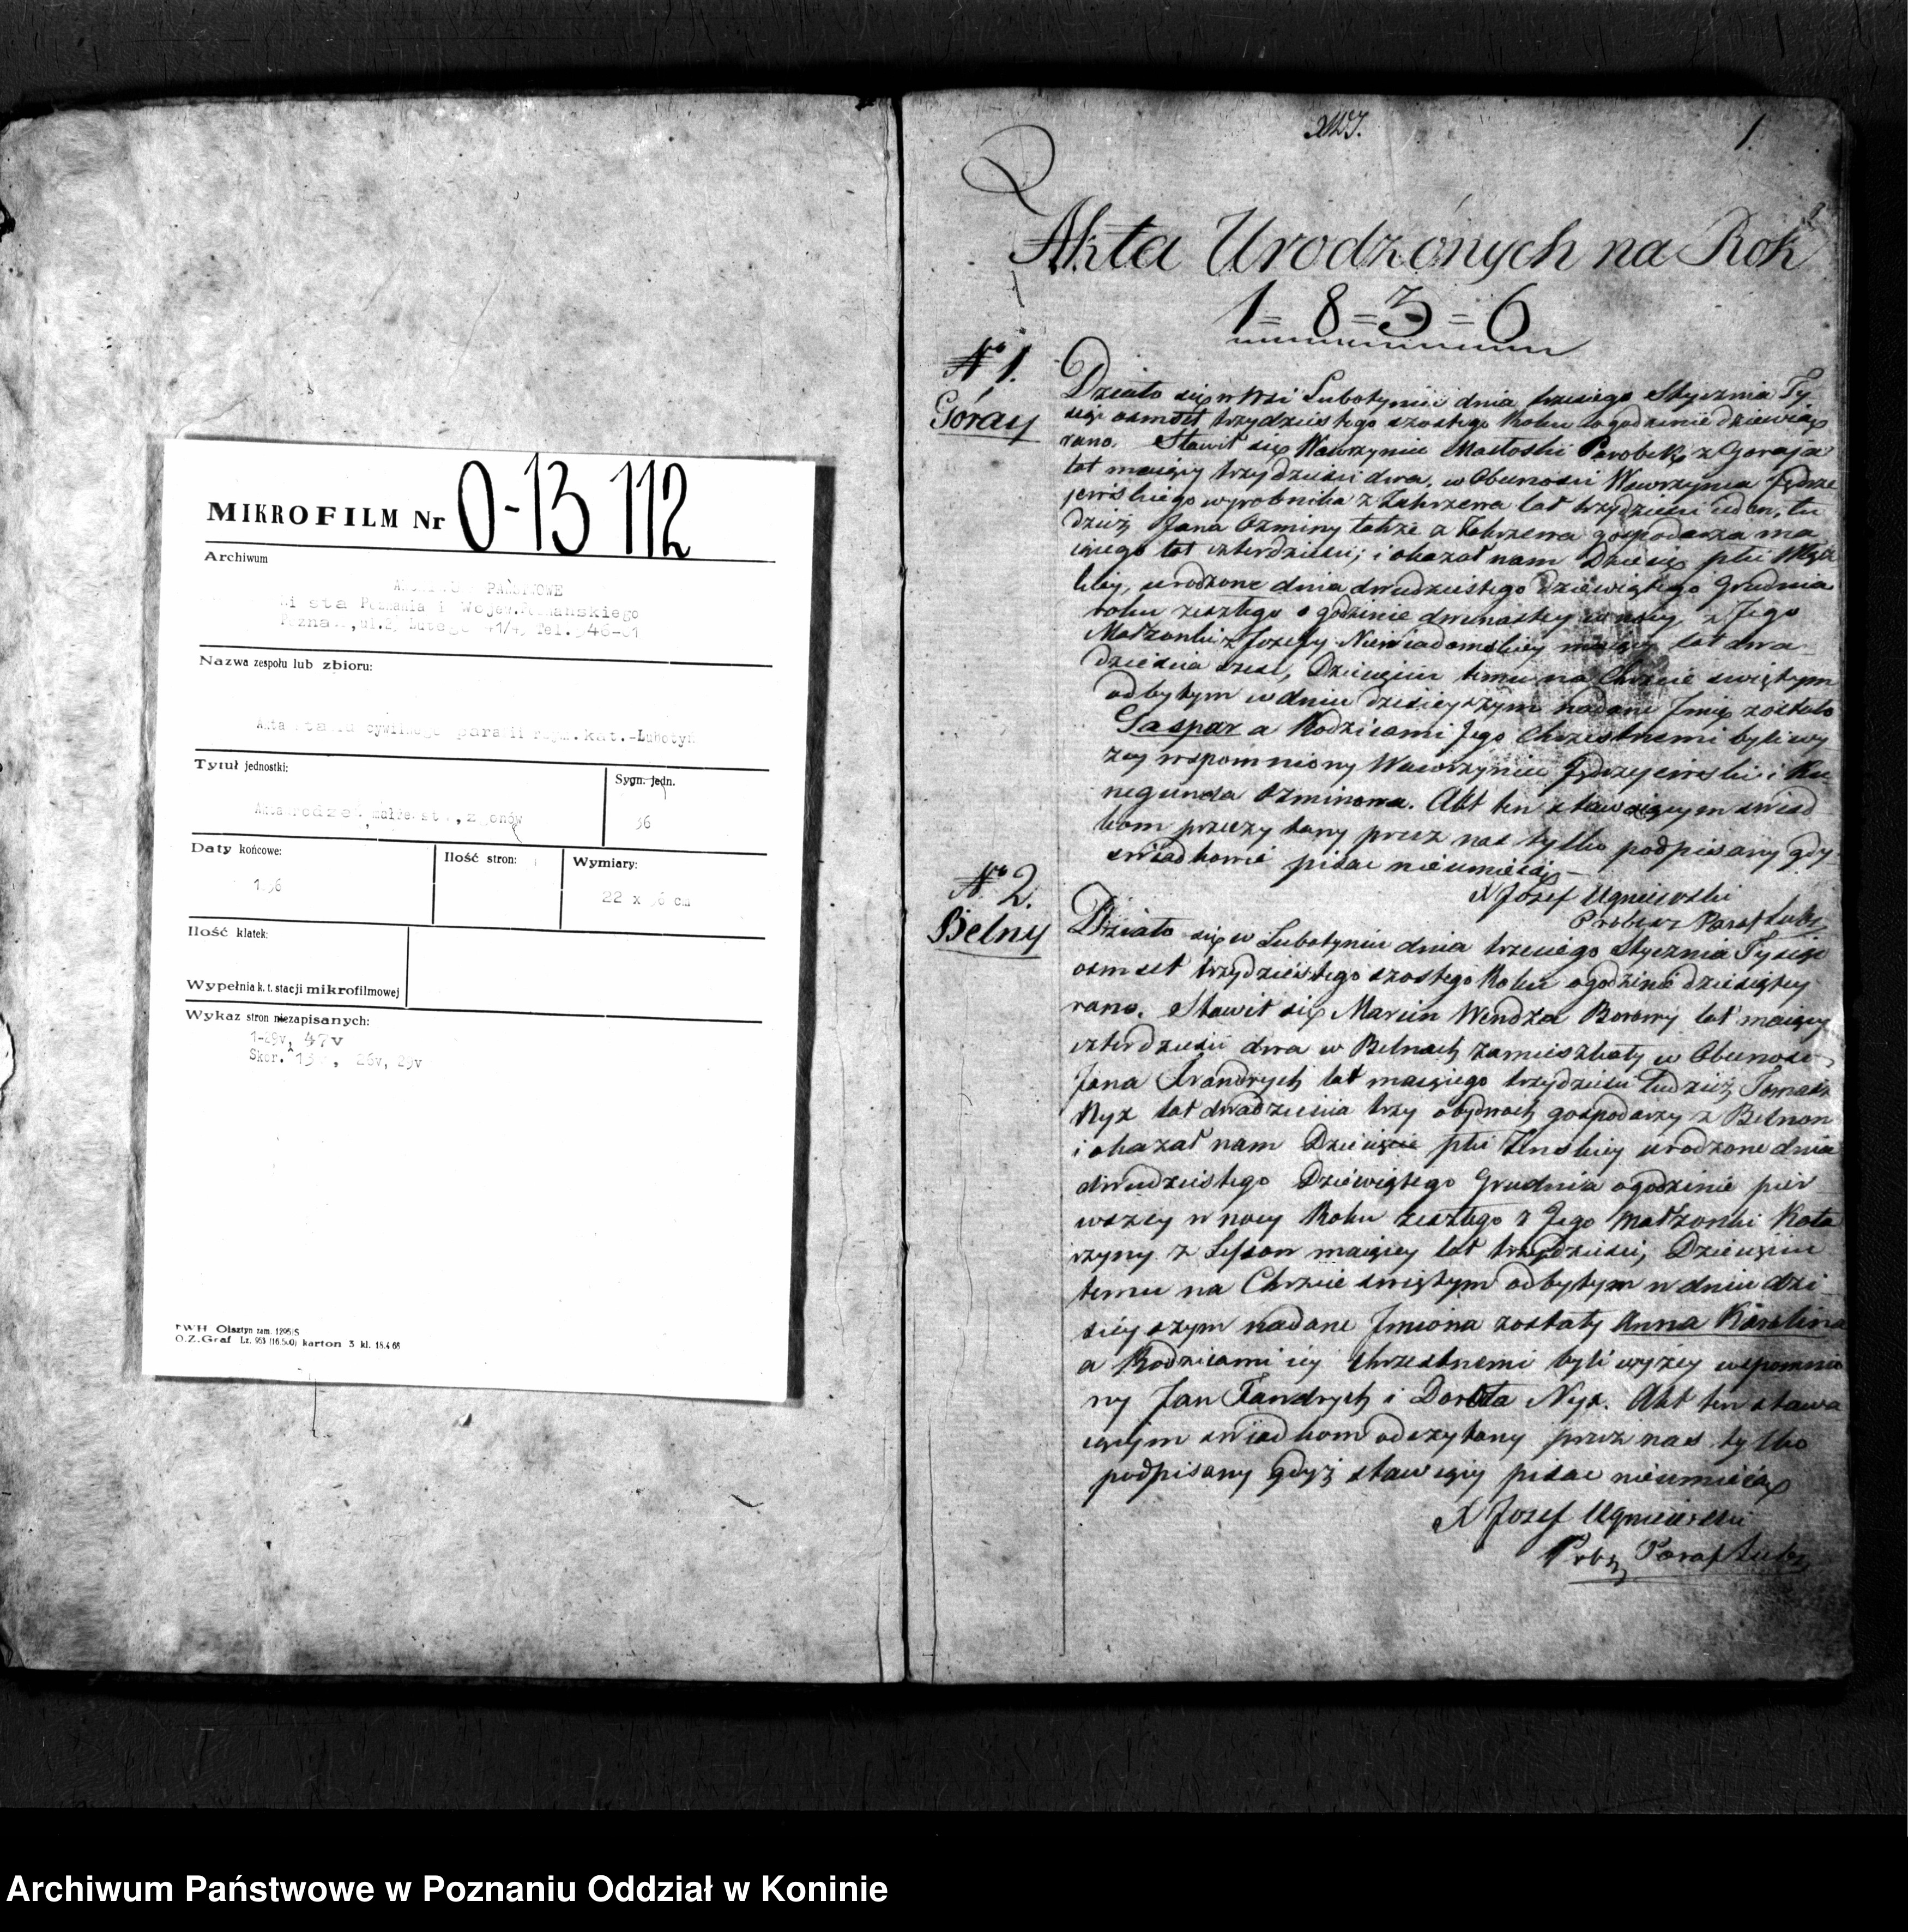 MIKROFILM Nr 0-13 112
Archiwum
PAŃSTWOWE
Poznania i Wojew.
Nazwa zespołu lub zbioru:
Tytuł jednostki:
Sygn. jedn.
Daty końcowe:
Ilość stron:
Wymiary:
22 x 36 cm
Ilość klatek:
Wypełnia k. t. stacji mikrofilmowej
Wykaz stron niezapisanych:
1-29v, 47v
26v, 29v
1.
Akta Urodzonych na Rok
1=8=3=6
No 1.
Góray
Działo się w Wsi Lubotyniu dnia trzeciego Stycznia Ty
siąc osmset trzydziestego szostego Roku o godzinie dziewiątey
rano. Stawił się Wawrzyniec Parobek z Goraja
lat maiący trzydziesci dwa, w Obecnosci Wawrzyńca Jędrze
jewskiego wyrobnika z Zakrzewa lat trzydziesci ieden, tu
dzież Jana Ozminy także z Zakrzewa gospodarza ma
iącego lat czterdziesci; i okazał nam Dziecię płci Męz
kiey, urodzone dnia dwudziestego dziewiątego Grudnia
roku zeszłego o godzinie dwunastey w nocy, z Jego
Małzonki z Jozefy Niewiadomskiey maiącey lat dwa
dziescia szesc, Dziecięciu temu na Chrzcie swiętym
odbytym w dniu dzisieyszym nadane Jmię zostało
Gaspar a Rodzicami Jego Chrzestnemi byli wy
zey wspomniony Wawrzyniec Jędrzejewski i Ku
negunda Ozminowa. Akt ten stawaiącym swiad
kom przeczytany przez nas tylko podpisany gdy
swiadkowie pisac nieumieią
X Jozef Ugniewski
Proboszcz Paraf Lubo
No 2.
Belny
Działo się w Lubotyniu dnia trzeciego Stycznia Tysiąc
osmset trzydziestego szostego Roku o godzinie dziesiątey
rano. Stawił się Marcin Wendza Borowy lat maiący
czterdziesci dwa w Belnach zamieszkały w Obecnosci
Jana lat maiącego trzydziesci tudzież Tomasza
Nyx lat dwadziescia trzy obydwoch gospodarzy z Belnow
i okazał nam Dziecięcie płci Zenskiey urodzone dnia
dwudziestego Dziewiątego Grudnia o godzinie pier
wszey w nocy Roku zeszłego z Jego Małzonki Kata
rzyny z maiącey lat trzydziesci, Dziecięciu
temu na Chrzcie swiętym odbytym w dniu dzi
sieyszym nadane Jmiona zostały Anna Karolina
a Rodzicami iey chrzestnemi byli wyzey wspomnio
ny Jan Fandrych i Dorota Nyx. Akt ten stawa
iącym swiadkom odczytany przez nas tylko
podpisany gdyż stawaiący pisac nieumieią
X Jozef Ugniewski
Prob Paraf Lubo
Archiwum Państwowe w Poznaniu Oddział w Koninie